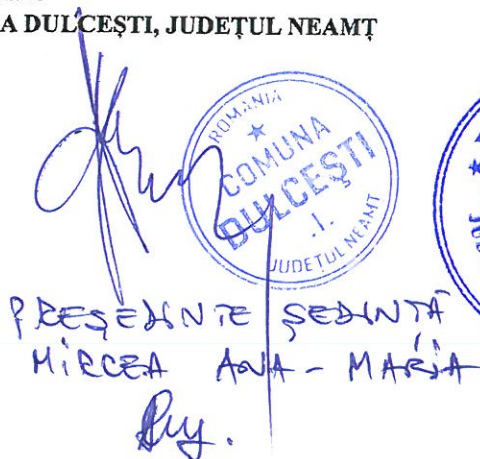 A DULCEȘTI, JUDEȚUL NEAMȚ
ROMANIA
COMUNA
DULCEȘTI
.I.
JUDEȚUL NEAMȚ
PREȘEDINTE ȘEDINȚĂ
MIRCEA ANA - MARIA